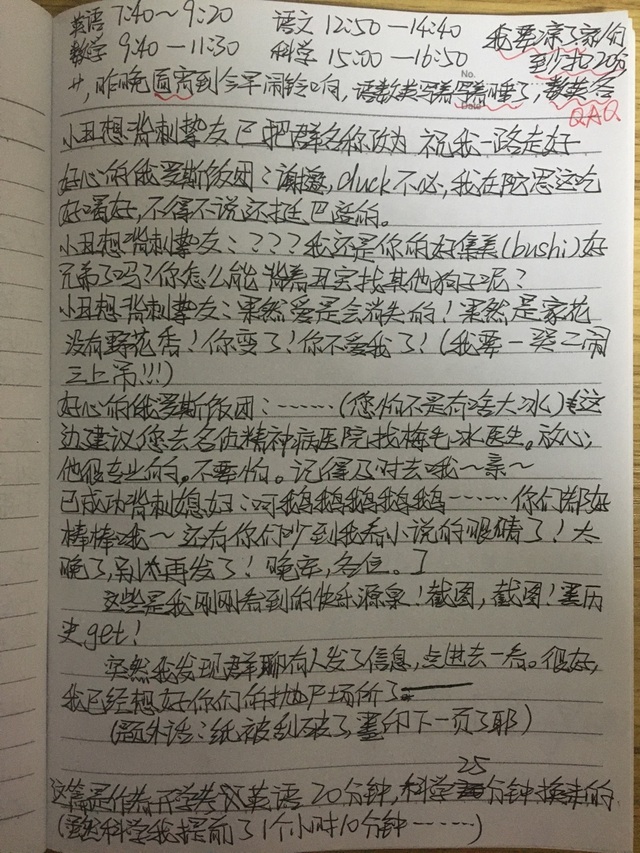 英语 7:40～9:20 语文 12:50—14:40 我要凉了家人们
数学 9:40—11:30 科学 15:00—16:50 至少扣20分
No.
艹，昨晚回宿到今早闹铃响，语数英写着写着睡了，数英合
Date
QAQ
小丑想背刺挚友已把群名称改为 祝我一路走好
好心的俄罗斯饭团：谢邀，duck不必，我在阿思这吃
好喝好，不得不说还挺巴适的。
小丑想背刺挚友：？？？我还是你的好集美(bushi)好
兄弟了吗？你怎么能背着丑宝找其他狗子呢？
小丑想背刺挚友：果然爱是会消失的！果然是家花
没有野花香！你变了！你不爱我了！(我要一哭二闹
三上吊!!!)
好心的俄罗斯饭团：……(您怕不是有啥大冰)这
边建议您去名优精神病医院找梅毛冰医生。放心，
他很专业的。不要怕。记得及时去哦～亲～
已成功背刺媳妇：呵鹅鹅鹅鹅鹅鹅……你们都好
棒棒哦～还有你们吵到我看小说的眼睛了！太
晚了，别再发了！晚安，各位。]
这些是我刚刚看到的快乐源泉！截图，截图！黑历
史get！
突然我发现群聊有人发了信息，点进去一看。很好，
我已经想好你们的抛尸场所了
(题外话：纸被刮破了，墨印下一页了耶)
25
这篇是作者开学考英语20分钟，科学分钟换来的
(虽然科学我提前了1个小时10分钟……)